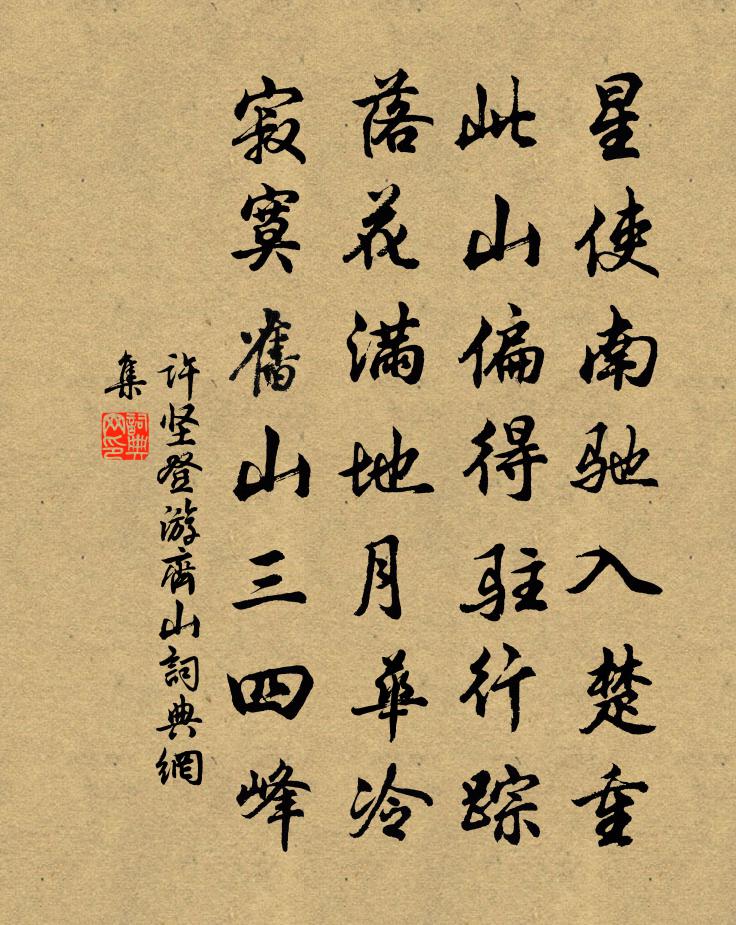 星使南驰入楚重
此山偏得驻行踪
落花满地月华冷
寂寞舊山三四峰
许坚登游齊山詞典網
集
詞典網印